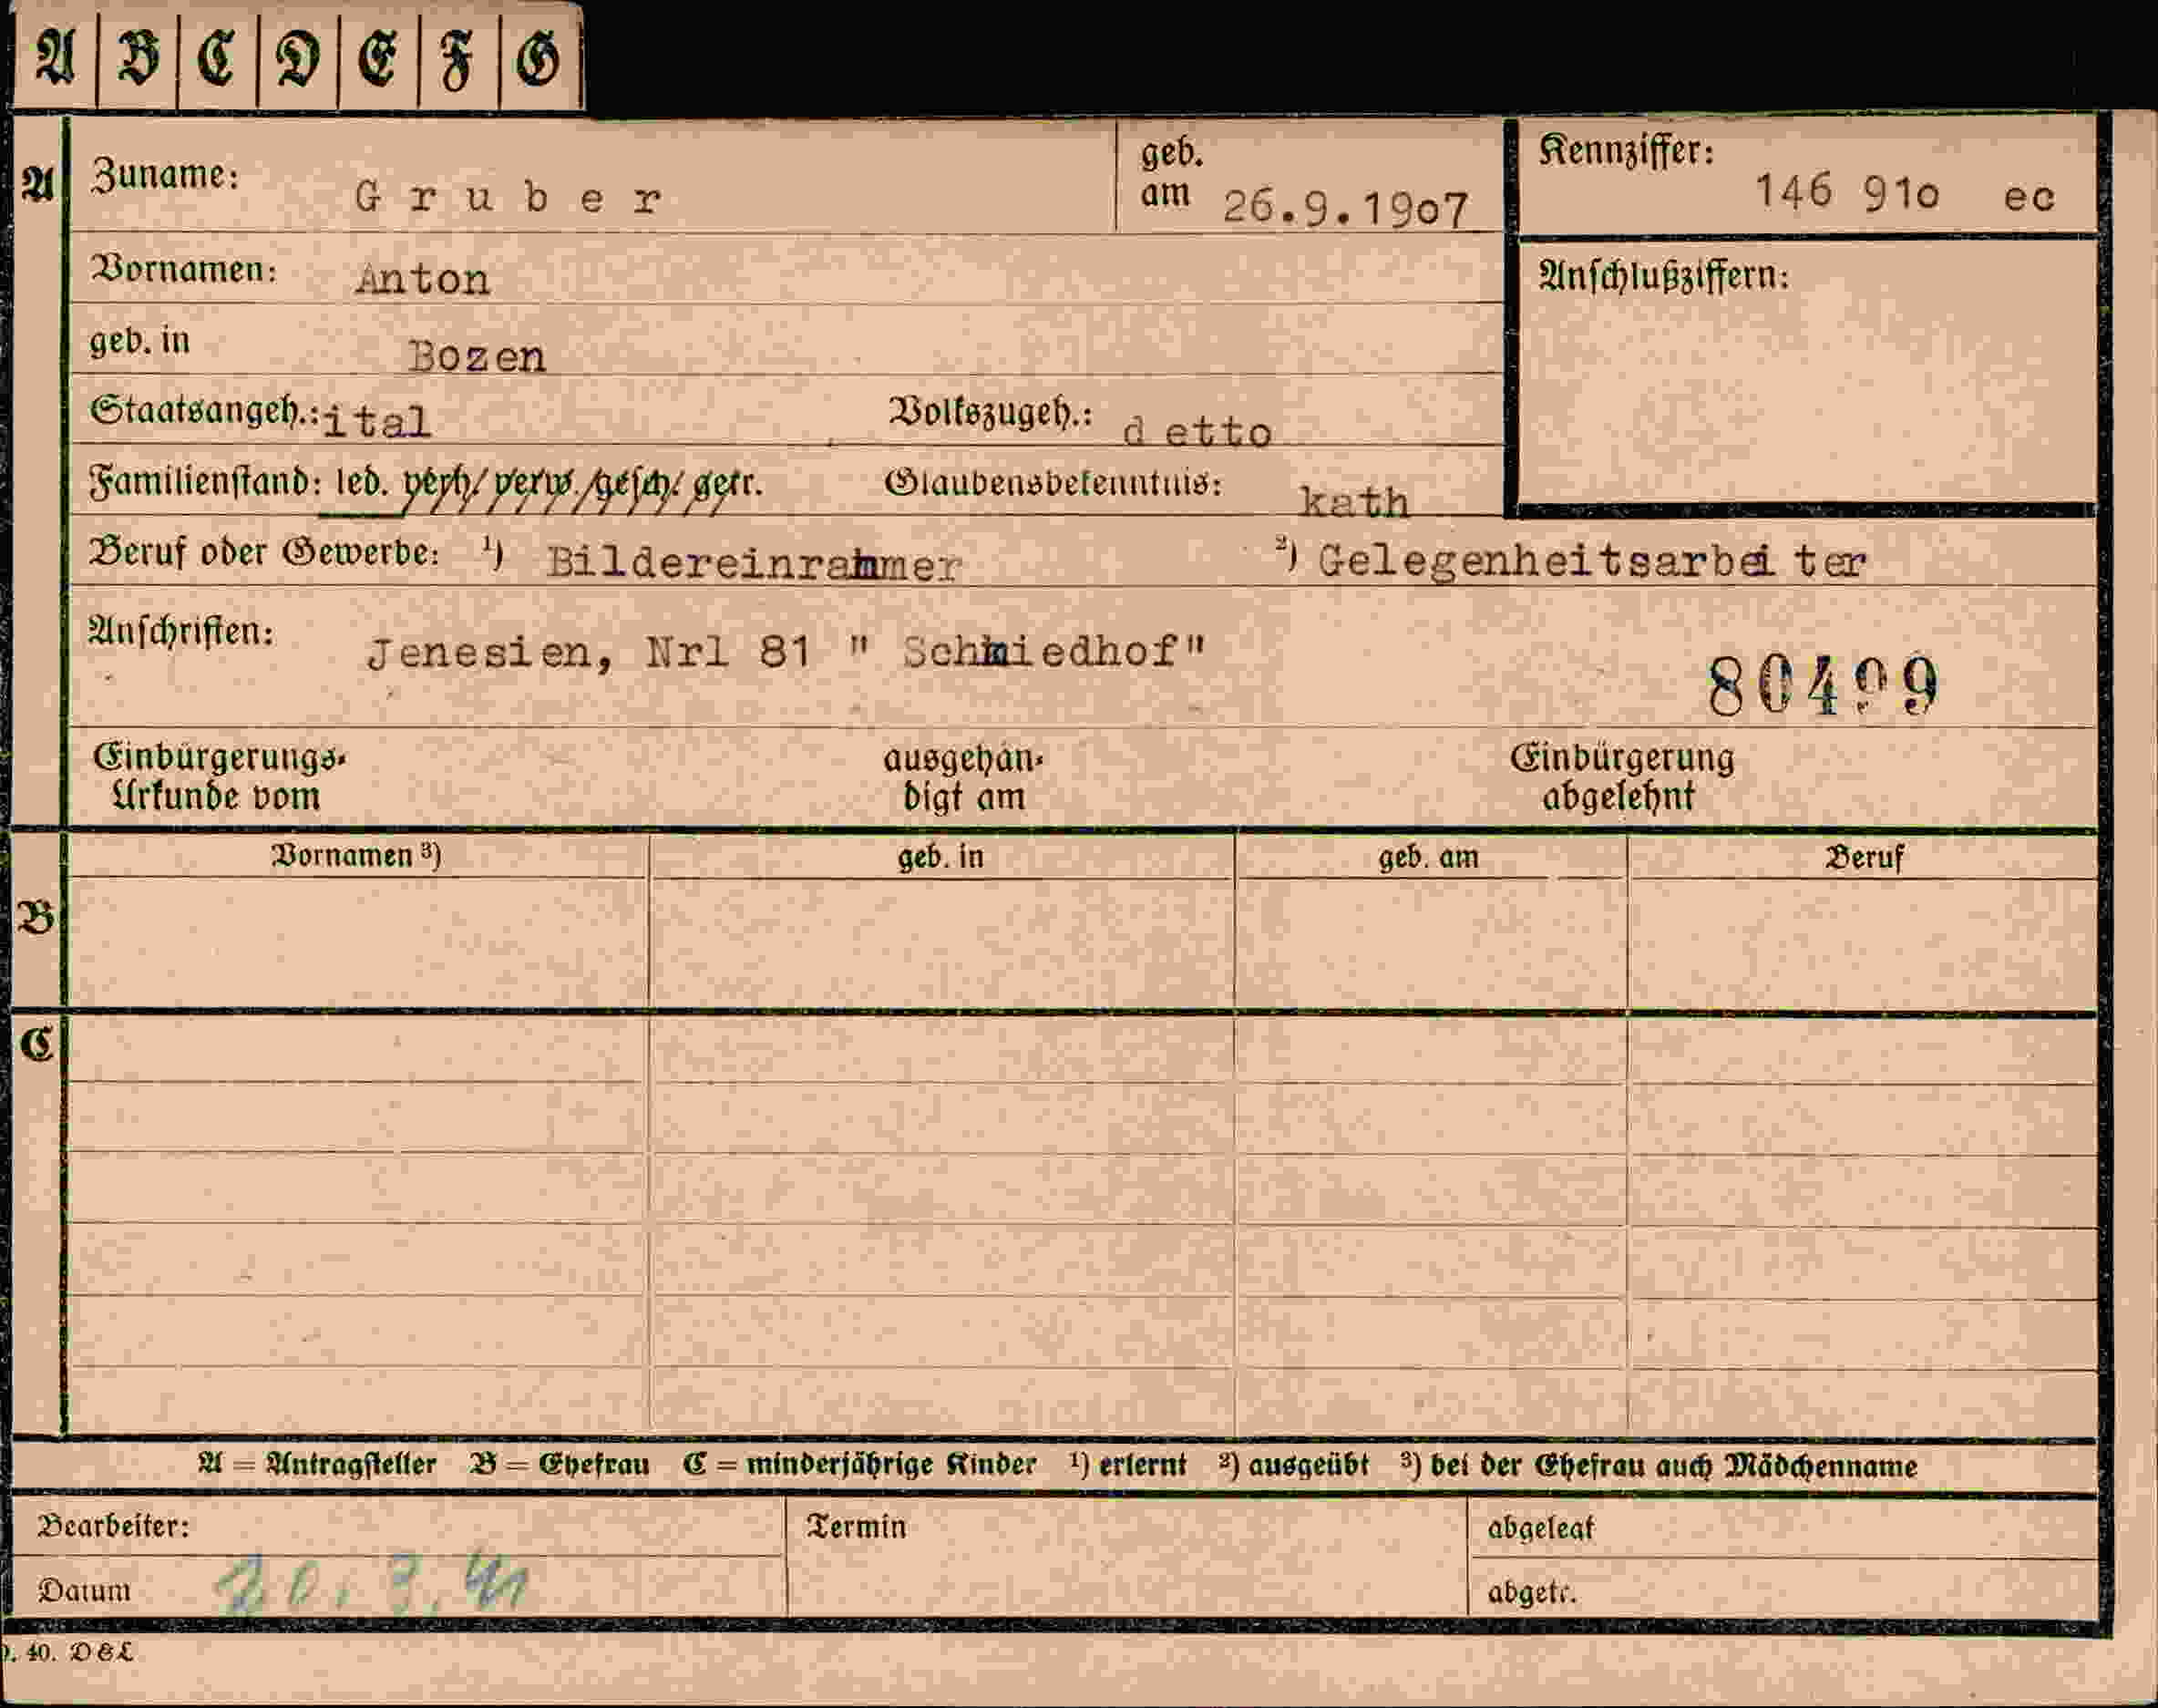 A B C D E F G
A Zuname: Gruber geb. am 26.9.19o7 Kennziffer: 146 91o ec
Vornamen: Anton Anschlußziffern:
geb. in Bozen
Staatsangeh.: ital Volkszugeh.: d etto
Familienstand: led. verh. verw. gesch. getr. Glaubensbekenntnis: kath
Beruf oder Gewerbe: ¹) Bildereinrahmer ²) Gelegenheitsarbei ter
Anschriften: Jenesien, Nrl 81 " Schmiedhof"
80499
Einbürgerungs- ausgehän- Einbürgerung
Urkunde vom digt am abgelehnt
Vornamen ³) geb. in geb. am Beruf
B
C
A = Antragsteller B = Ehefrau C = minderjährige Kinder ¹) erlernt ²) ausgeübt ³) bei der Ehefrau auch Mädchenname
Bearbeiter: Termin abgelegt
Datum abgetr.
40. D&L